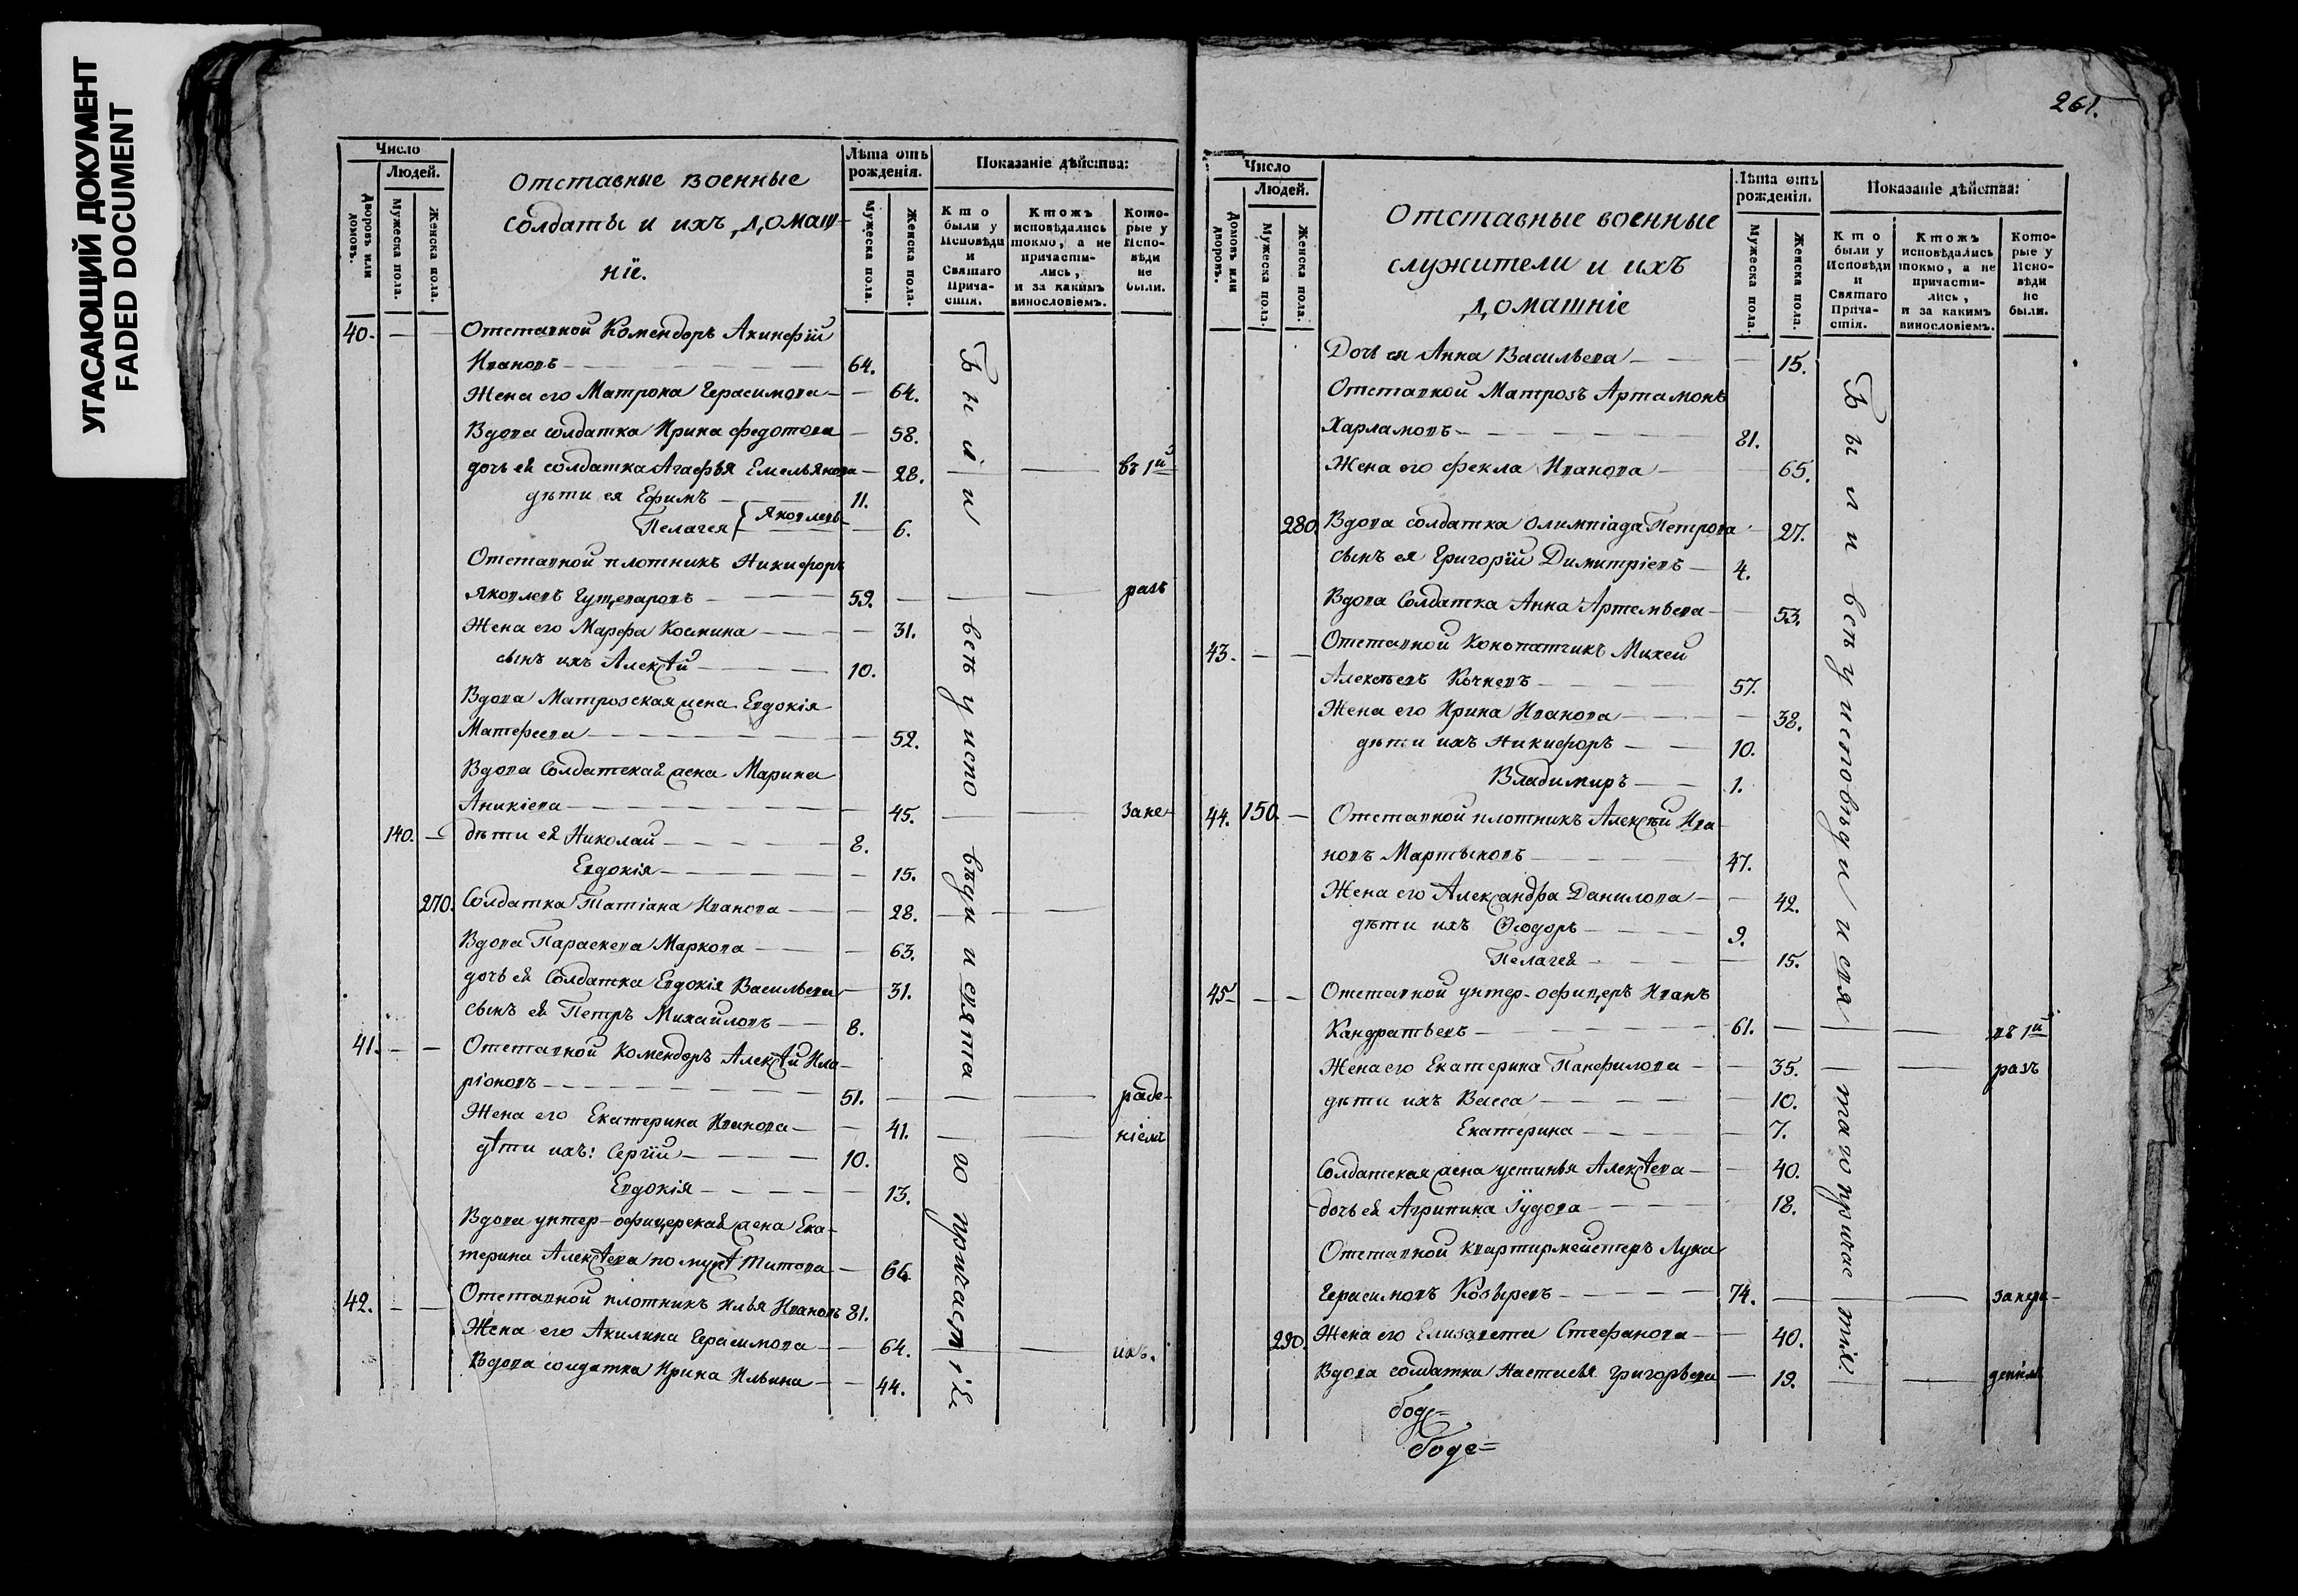 УГАСАЮЩИЙ ДОКУМЕНТ
FADED DOCUMENT
Число
Людей.
Дворовъ или домовъ.
Мужеска пола.
Женска пола.
Отставные военные
солдаты и ихъ домаш-
нїе.
Лѣта отъ рожденія.
Мужеска пола.
Женска пола.
Показаніе дѣйства:
Кто были у Исповѣди и Святаго Причастія.
Ктожъ исповѣдались токмо, а не причастились, и за какимъ винословіемъ.
Которые у Исповѣди не были.
40. — — Отставной Комендоръ Акинфїй
Ивановъ — 64.
Жена его Матрона Герасимова — 64.
Вдова солдатка Ирина Федотова — 58.
дочь ея солдатка Агафья Емельянова — 28. — — въ 1й
дѣти ея Ефимъ — 11.
Пелагея } Яковлевы — 6.
Отставной плотникъ Никифоръ
Яковлевъ Гущеваровъ — 59. — — — разъ
Жена его Марфа Космина — 31.
сынъ ихъ Алексѣй — 10.
Вдова Матрозская жена Евдокія
Матфеева — 52.
Вдова Солдатская жена Марина
Аникіева — 45. — — Зане-
140. — дѣти ея Николай — 8.
Евдокія — 15.
270. Солдатка Татіана Иванова — 28. — —
Вдова Параскева Маркова — 63.
дочь ея Солдатка Евдокія Васильева — 31.
сынъ ея Петръ Михайловъ — 8.
41. — — Отставной Комендоръ Алексѣй Ила-
ріоновъ — 51. — — — раде-
Жена его Екатерина Иванова — 41. — — ніемъ
дѣти ихъ: Сергїй — 10.
Евдокія — 13.
Вдова унтер-офицерская жена Ека-
терина Алексѣева по мужѣ Титова — 66.
42. — — Отставной плотникъ Илья Ивановъ 81.
Жена его Акилина Герасимова — 64. — — ихъ.
Вдова солдатка Ирина Ильина — 44.
Были всѣ у исповѣди и святаго причастія
261.
Число
Людей.
Домовъ или дворовъ.
Мужеска пола.
Женска пола.
Отставные военные
служители и ихъ
домашніе
Лѣта отъ рожденія.
Мужеска пола.
Женска пола.
Показаніе дѣйства:
Кто были у Исповѣди и Святаго Причастія.
Ктожъ исповѣдались токмо, а не причастились, и за какимъ винословіемъ.
Которые у Исповѣди не были.
Дочь ея Анна Васильева — 15.
Отставной Матрозъ Артамонъ
Харламовъ — 81.
Жена его Фекла Иванова — 65.
280. Вдова солдатка Олимпіада Петрова — 27.
сынъ ея Григорїй Димитріевъ — 4.
Вдова Солдатка Анна Артемьева — 53.
43. — — Отставной Конопатчикъ Михей
Алексѣевъ Кочневъ — 57.
Жена его Ирина Иванова — 38.
дѣти ихъ Никифоръ — 10.
Владимиръ — 1.
44. 150. — Отставной плотникъ Алексѣй Ива-
новъ Мартыновъ — 47.
Жена его Александра Данилова — 42.
дѣти ихъ Ѳеодоръ — 9.
Пелагея — 15.
45. — — Отставной унтер-офицеръ Иванъ
Кандратьевъ — 61. — — — въ 1й
Жена его Екатерина Панфилова — 35. — — разъ
дѣти ихъ Васса — 10.
Екатерина — 7.
Солдатская жена устинья Алексѣева — 40.
дочь ея Агрипина Іудова — 18.
Отставной квартирмейстеръ Лука
Герасимовъ Козыревъ — 74. — — —
290. Жена его Елизавета Стефанова — 40.
Вдова солдатка Настасья Григорьева — 19. — —
Были всѣ у исповѣди и свя таго причас тія.